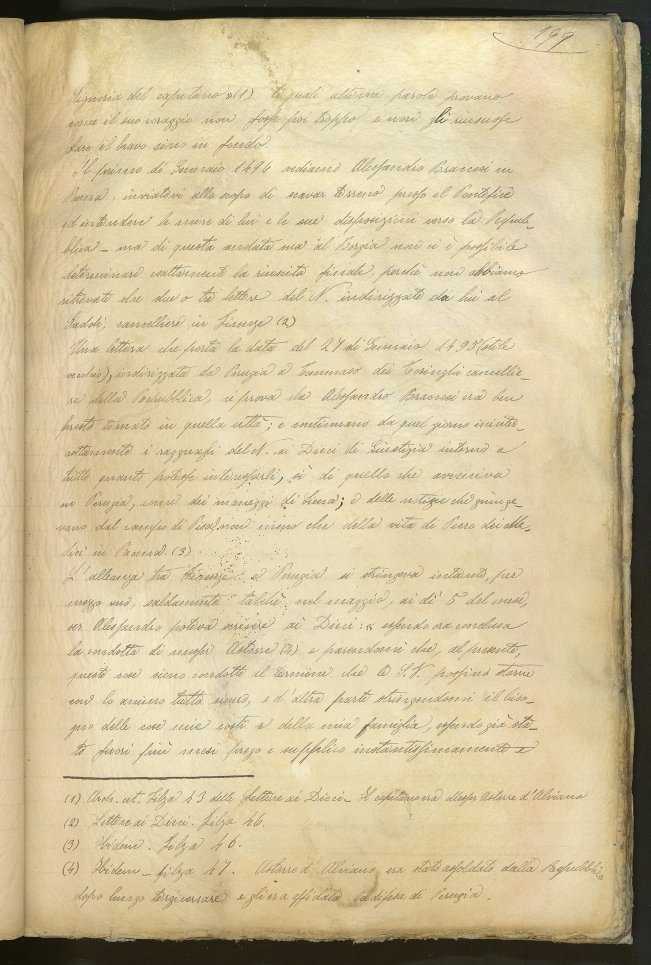 199
Signoria del capitano »(1) le quali ultime parole provano
come il suo coraggio non fosse poi troppo e non gli riuscisse
fare il bravo sino in fondo.
Il primo di Gennaio 1496 vediamo Alessandro Braccesi in
Roma, inviatovi allo scopo di scavar terreno presso il Pontefice
ed intendere le mire di lui e le sue disposizioni verso la Repub-
blica – ma di questa andata ma al Borgia non ci è possibile
determinare esattamente la riuscita finale, perchè non abbiamo
ritrovate che due o tre lettere del N. indirizzate da lui al
Gaddi, cancelliere in Firenze (2)
Una lettera che porta la data del 27 di Gennaio 1495 (stile
vecchio), indirizzata da Perugia a Tommaso dei Cosinghi cancellie-
re della Repubblica, ci prova che Alessandro Braccesi era ben
presto tornato in quella città; e continuano da quel giorno ininter-
rottamente i ragguagli del N. ai Dieci di Giustizia intorno a
tutto quanto potesse interessarli, sì di quello che avveniva
in Perugia, come dei maneggi di Siena; e delle notizie che giunge-
vano dal campo di Pisa, non meno che della vita di Piero dei Me-
dici in Roma (3)
L'alleanza tra Firenze e Perugia si stringeva intanto, per
mezzo suo, saldamente talchè nel maggio, ai dì 5 del mese,
ser Alessandro poteva scrivere ai Dieci: « essendo ora conclusa
la condotta di messer Astorre (4) e parendomi che, al presente,
queste cose sieno condotte al termine che le S.V. possino starne
con lo animo tutto sicuro, e d'altra parte stringendomi il biso-
gno delle cose mie costì e della mia famiglia, essendo già sta-
to fuori più mesi prego e supplico instantissimamente e
(1) Arch. cit. Filza 43 delle Lettere ai Dieci – Il capitano era Messer Astorre d'Alviano
(2) Lettere ai Dieci. Filza 46.
(3) Ibidem. Filza 46.
(4) Ibidem – filza 47. Astorre d'Alviano era stato assoldato dalla Repubblica
dopo lungo tergiversare e gli era affidata la difesa di Perugia.